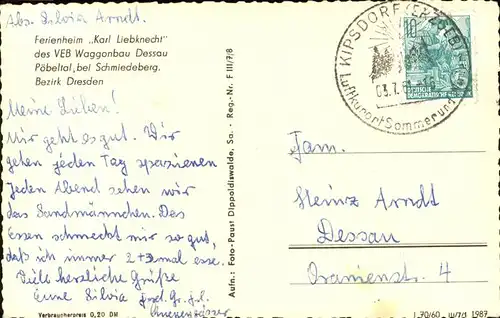 Abs. Silvia Arndt.
Ferienheim „Karl Liebknecht"
des VEB Waggonbau Dessau
Pöbeltal, bei Schmiedeberg.
Bezirk Dresden
Meine Lieben!
Mir geht es gut. Wir
gehen jeden Tag spazieren
Jeden Abend sehen wir
das Sandmännchen. Das
Essen schmeckt mir so gut,
daß ich immer 2+3mal esse.
Viele herzliche Grüße
Eure Silvia
Verbraucherpreis 0,20 DM
Aufn.: Foto-Paust Dippoldiswalde, Sa. - Reg.-Nr. F III/7/8
KIPSDORF (ERZGEB)
03.7.61
Luftkurort Sommer und
10
DEUTSCHE
DEMOKRATISCHE REPUBLIK
Fam.
Heinz Arndt
Dessau
Oranienstr. 4
1-70/60 W/7d 1987